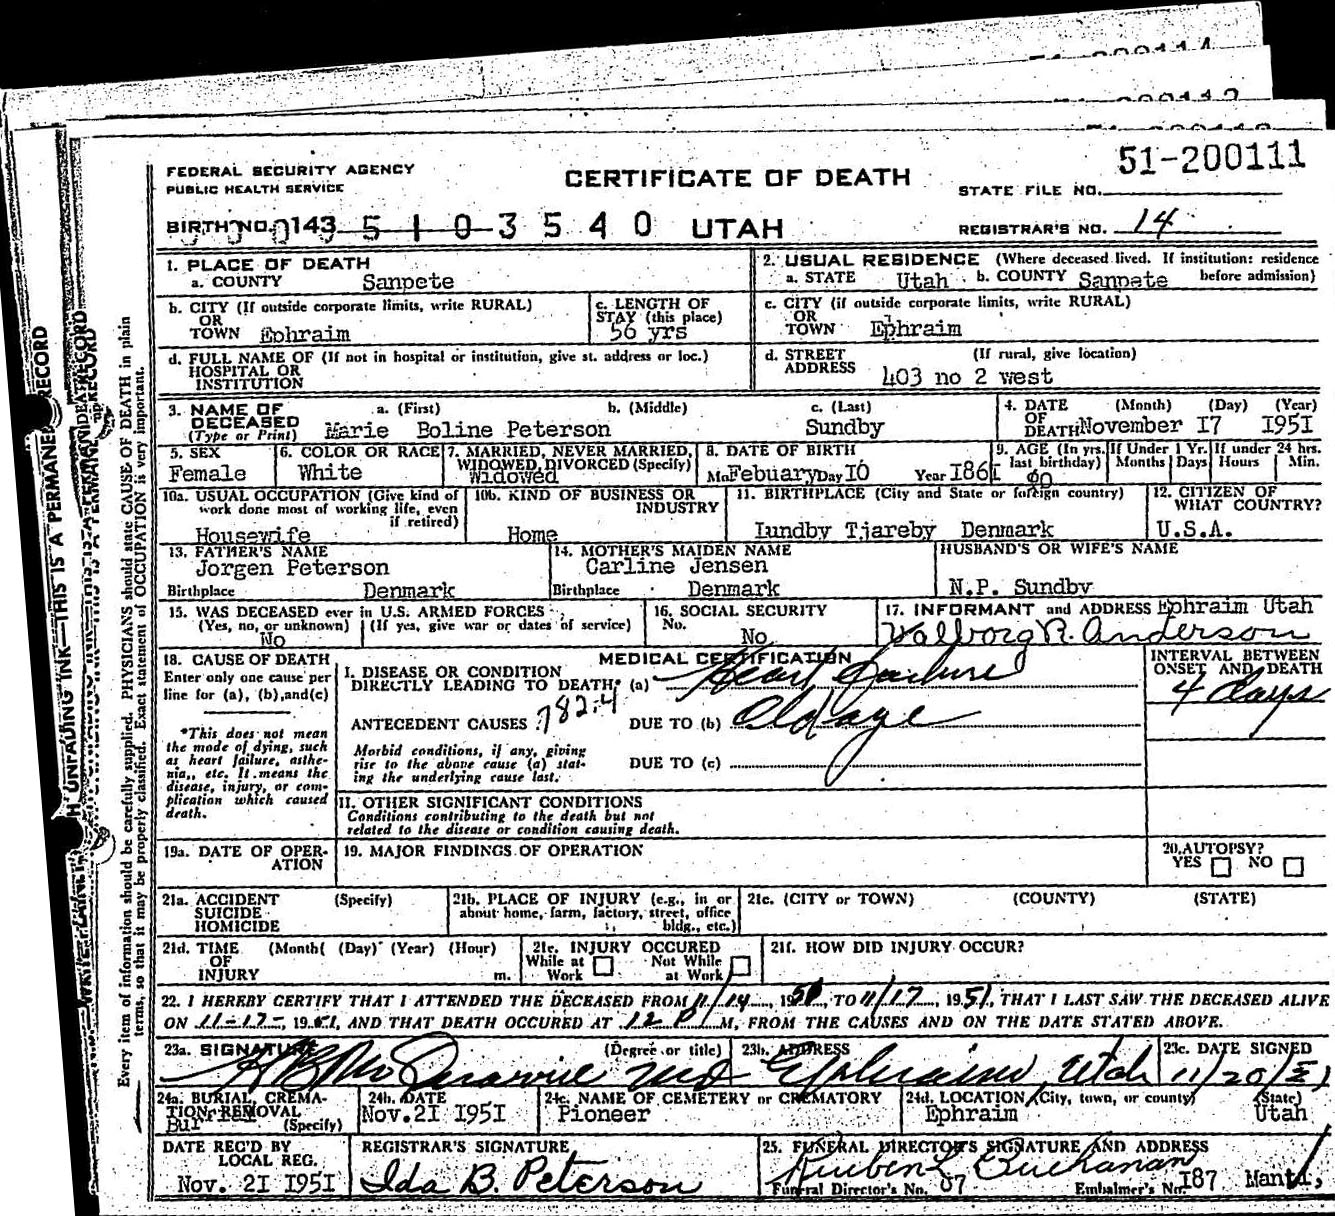 51-200111
FEDERAL SECURITY AGENCY
PUBLIC HEALTH SERVICE
CERTIFICATE OF DEATH
STATE FILE NO.
BIRTH NO. 143 5 1 0 3 5 4 0 UTAH
REGISTRAR'S NO. 14
1. PLACE OF DEATH
a. COUNTY Sanpete
2. USUAL RESIDENCE (Where deceased lived. If institution: residence before admission)
a. STATE Utah b. COUNTY Sanpete
b. CITY (If outside corporate limits, write RURAL)
OR
TOWN Ephraim
c. LENGTH OF
STAY (this place)
56 yrs
c. CITY (if outside corporate limits, write RURAL)
OR
TOWN Ephraim
d. FULL NAME OF (If not in hospital or institution, give st. address or loc.)
HOSPITAL OR
INSTITUTION
d. STREET (If rural, give location)
ADDRESS 403 no 2 west
3. NAME OF a. (First) b. (Middle) c. (Last)
DECEASED
(Type or Print) Marie Boline Peterson Sundby
4. DATE (Month) (Day) (Year)
OF
DEATH November I7 I95I
5. SEX
Female
6. COLOR OR RACE
White
7. MARRIED, NEVER MARRIED,
WIDOWED, DIVORCED (Specify)
Widowed
8. DATE OF BIRTH
Mo Febuary Day I0 Year I86I
9. AGE (In yrs. last birthday)
90
If Under 1 Yr.
Months Days
If under 24 hrs.
Hours Min.
10a. USUAL OCCUPATION (Give kind of
work done most of working life, even
if retired)
Housewife
10b. KIND OF BUSINESS OR
INDUSTRY
Home
11. BIRTHPLACE (City and State or foreign country)
Lundby Tjareby Denmark
12. CITIZEN OF
WHAT COUNTRY?
U.S.A.
13. FATHER'S NAME
Jorgen Peterson
Birthplace Denmark
14. MOTHER'S MAIDEN NAME
Carline Jensen
Birthplace Denmark
HUSBAND'S OR WIFE'S NAME
N.P. Sundby
15. WAS DECEASED ever in U.S. ARMED FORCES
(Yes, no, or unknown) (If yes, give war or dates of service)
No
16. SOCIAL SECURITY
No.
No
17. INFORMANT and ADDRESS Ephraim Utah
Valborg R. Anderson
18. CAUSE OF DEATH
Enter only one cause per
line for (a), (b), and (c)
*This does not mean
the mode of dying, such
as heart failure, asthe-
nia,, etc. It means the
disease, injury, or com-
plication which caused
death.
MEDICAL CERTIFICATION
I. DISEASE OR CONDITION
DIRECTLY LEADING TO DEATH* (a) Heart Failure
INTERVAL BETWEEN
ONSET AND DEATH
4 days
ANTECEDENT CAUSES 782.4 DUE TO (b) Old age
Morbid conditions, if any, giving
rise to the above cause (a) stat-
ing the underlying cause last.
DUE TO (c)
II. OTHER SIGNIFICANT CONDITIONS
Conditions contributing to the death but not
related to the disease or condition causing death.
19a. DATE OF OPER-
ATION
19. MAJOR FINDINGS OF OPERATION
20. AUTOPSY?
YES NO
21a. ACCIDENT (Specify)
SUICIDE
HOMICIDE
21b. PLACE OF INJURY (e.g., in or
about home, farm, factory, street, office
bldg., etc.)
21c. (CITY OR TOWN) (COUNTY) (STATE)
21d. TIME (Month( (Day) (Year) (Hour)
OF
INJURY m.
21e. INJURY OCCURED
While at Work Not While at Work
21f. HOW DID INJURY OCCUR?
22. I HEREBY CERTIFY THAT I ATTENDED THE DECEASED FROM 11/14, 1951, TO 11/17, 1951, THAT I LAST SAW THE DECEASED ALIVE
ON 11-17-, 1951, AND THAT DEATH OCCURED AT 12 P M, FROM THE CAUSES AND ON THE DATE STATED ABOVE.
23a. SIGNATURE (Degree or title)
MD
23b. ADDRESS
Ephraim, Utah
23c. DATE SIGNED
11/20/51
24a. BURIAL, CREMA-
TION, REMOVAL
(Specify)
24b. DATE
Nov. 2I I95I
24c. NAME OF CEMETERY or CREMATORY
Pioneer
24d. LOCATION (City, town, or county) (State)
Ephraim Utah
DATE REC'D BY
LOCAL REG.
Nov. 2I I95I
REGISTRAR'S SIGNATURE
Ida B. Peterson
25. FUNERAL DIRECTOR'S SIGNATURE AND ADDRESS
Ruben L Buchanan
Funeral Director's No. 87 Embalmer's No. I87 Manti,
Every item of information should be carefully supplied. PHYSICIANS should state CAUSE OF DEATH in plain
terms, so that it may be properly classified. Exact statement of OCCUPATION is very important.
UNFADING INK—THIS IS A PERMANENT RECORD